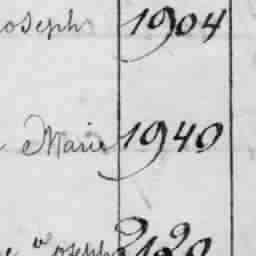 oseph 1904
Marie 1940
oseph 2120